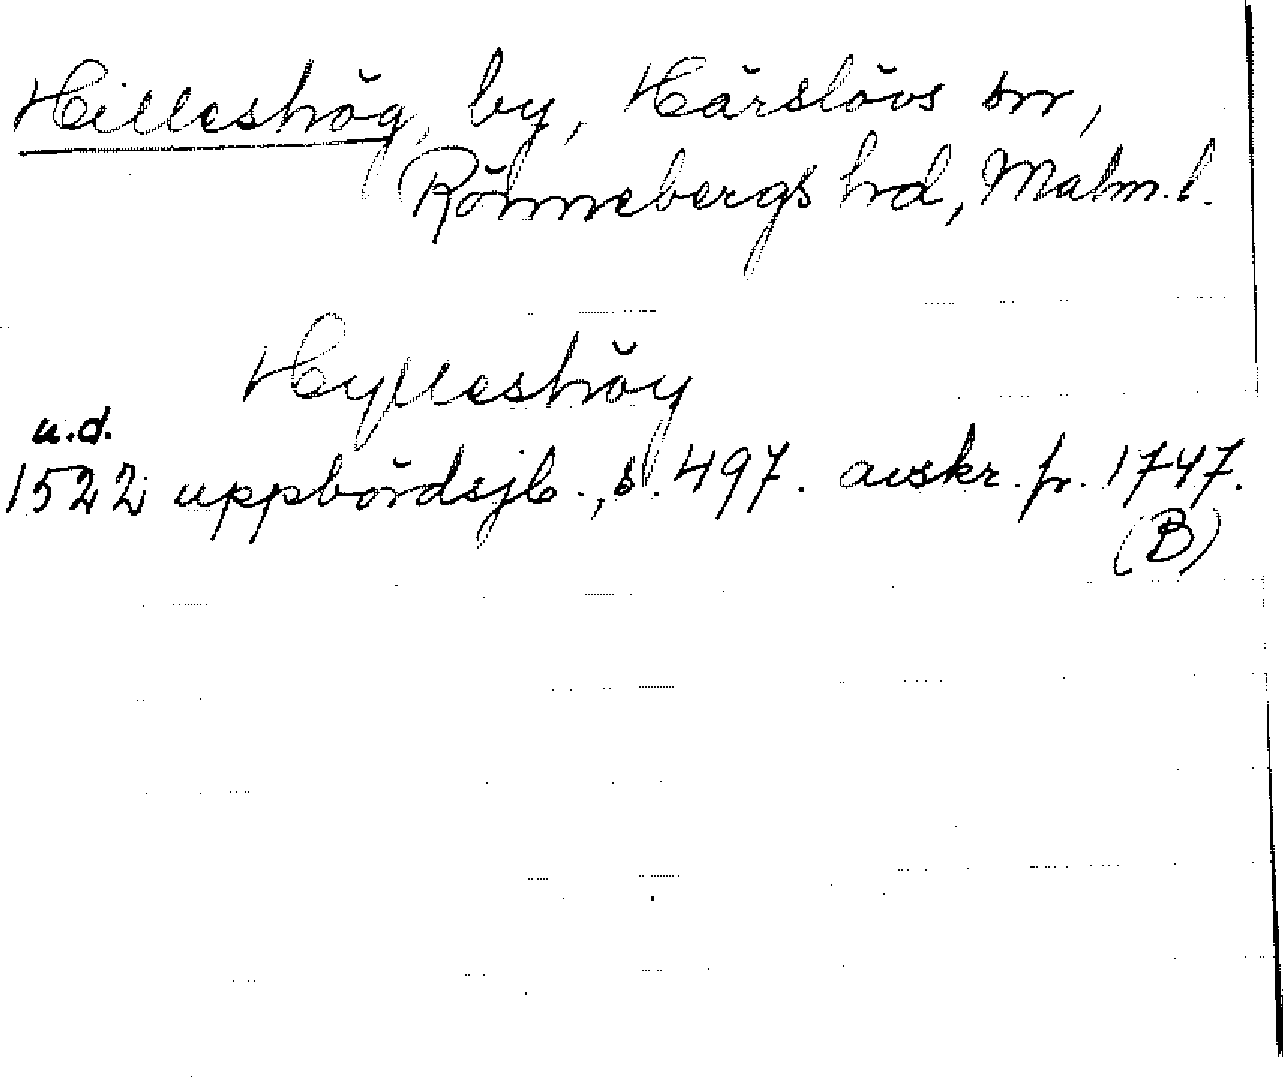 Hilleshög, by, Härslövs sn,
Rönnebergs hrd, Malm. l.
Hylleshöy
u.d.
1522 uppbördsjb., s. 497. avskr. fr. 1747.
(B)